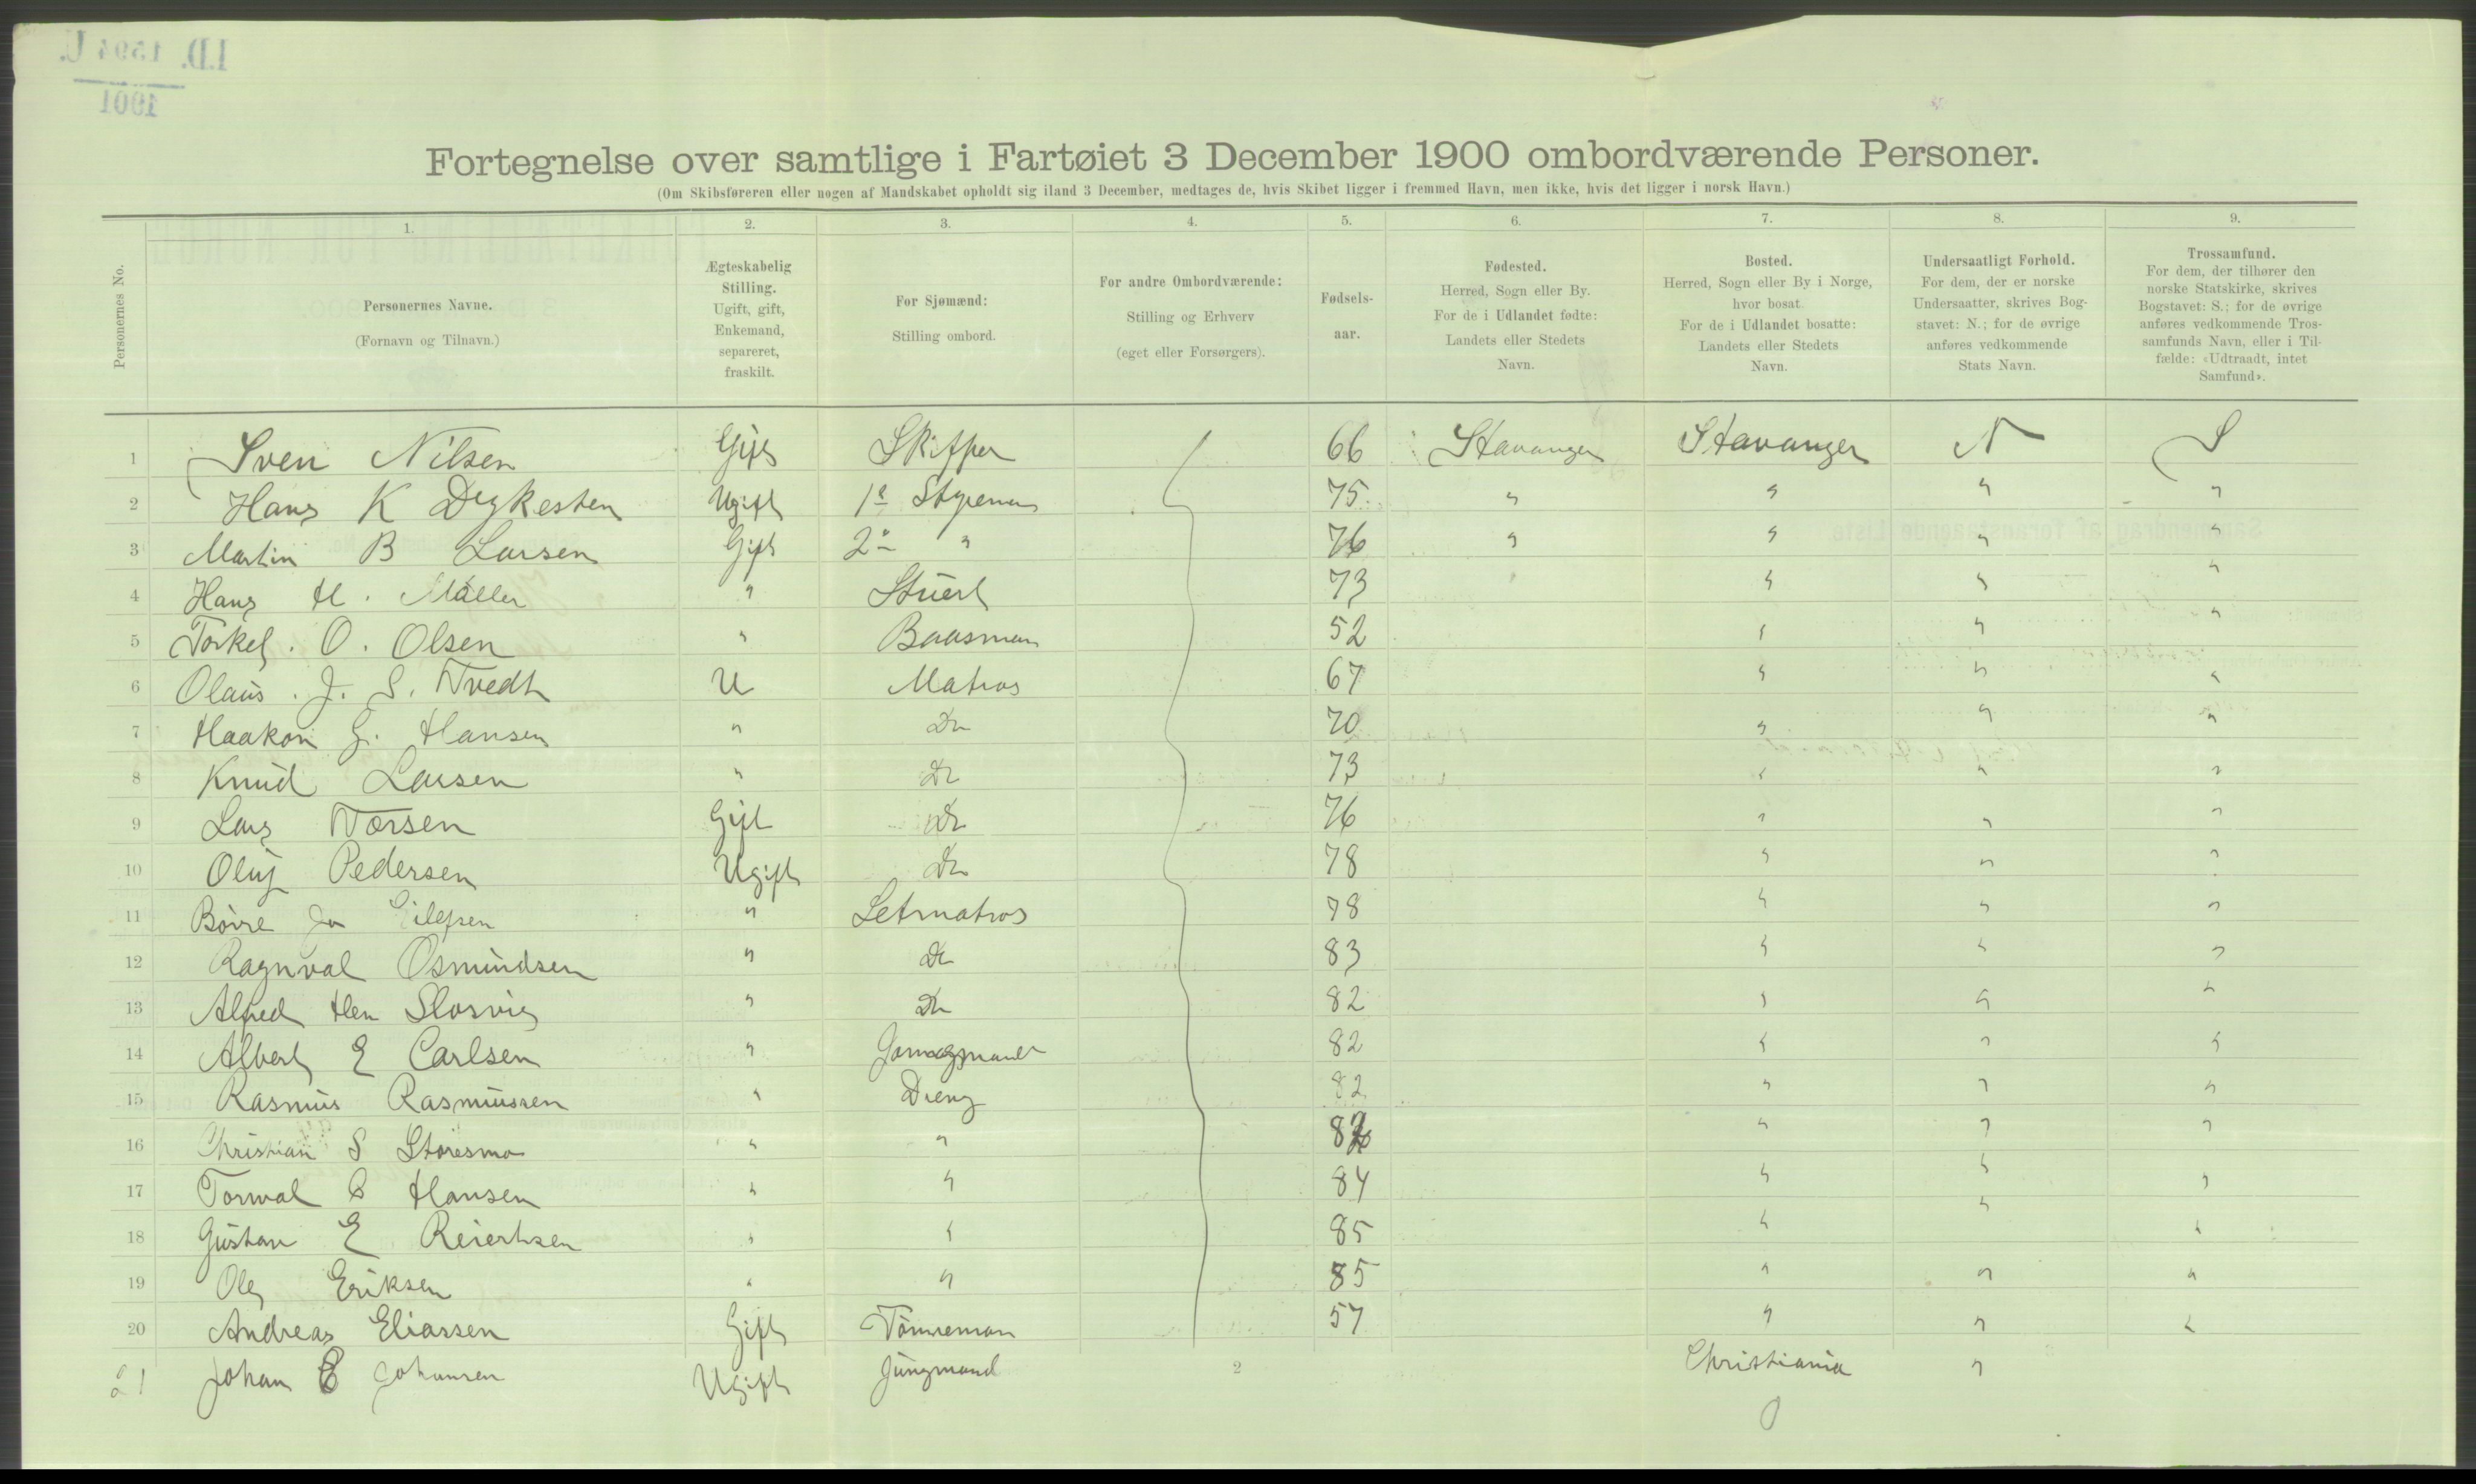 I.D. 1594 U.
1901
Fortegnelse over samtlige i Fartøiet 3 December 1900 ombordværende Personer.
(Om Skibsføreren eller nogen af Mandskabet opholdt sig iland 3 December, medtages de, hvis Skibet ligger i fremmed Havn, men ikke, hvis det ligger i norsk Havn.)
Personernes No.
1.
Personernes Navne.
(Fornavn og Tilnavn.)
2.
Ægteskabelig
Stilling.
Ugift, gift,
Enkemand,
separeret,
fraskilt.
3.
For Sjømænd:
Stilling ombord.
4.
For andre Ombordværende:
Stilling og Erhverv
(eget eller Forsørgers).
5.
Fødsels-
aar.
6.
Fødested.
Herred, Sogn eller By.
For de i Udlandet fødte:
Landets eller Stedets
Navn.
7.
Bosted.
Herred, Sogn eller By i Norge,
hvor bosat.
For de i Udlandet bosatte:
Landets eller Stedets
Navn.
8.
Undersaatligt Forhold.
For dem, der er norske
Undersaatter, skrives Bog-
stavet: N.; for de øvrige
anføres vedkommende
Stats Navn.
9.
Trossamfund.
For dem, der tilhører den
norske Statskirke, skrives
Bogstavet: S.; for de øvrige
anføres vedkommende Tros-
samfunds Navn, eller i Til-
fælde: «Udtraadt, intet
Samfund».
1 Sven Nilsen Gift Skipper 66 Stavanger Stavanger N S
2 Hans K Dykesten Ugift 1e Styrman 75 " " " "
3 Martin B Larsen Gift 2n " 76 " " " "
4 Hans H. Møller " Stuert 73 " " "
5 Torkel. O. Olsen " Baasman 52 " " "
6 Olaus. J. S. Tvedt U Matros 67 " " "
7 Haakon G. Hansen " Do 70 " " "
8 Knud Larsen " Do 73 " " "
9 Lars Torsen Gift Do 76 " " "
10 Oluf Pedersen Ugift Do 78 " " "
11 Børre Ja Eilefsen " Letmatros 78 " " "
12 Ragnval Osmundsen " Do 83 " " "
13 Alfred Hen " Do 82 " " "
14 Albert E Carlsen " 82 " " "
15 Rasmus Rasmussen " Dreng 82 " " "
16 Christian S Storesmo " " 82 " " "
17 Torwal B Hansen " " 84 " " "
18 Gustav E Reiertsen " " 85 " " "
19 Ole Eriksen " " 85 " " "
20 Andreas Eliassen Gift Tømreman 57 " " "
21 Johan E Johansen Ugift Jungmand Christiania "
2